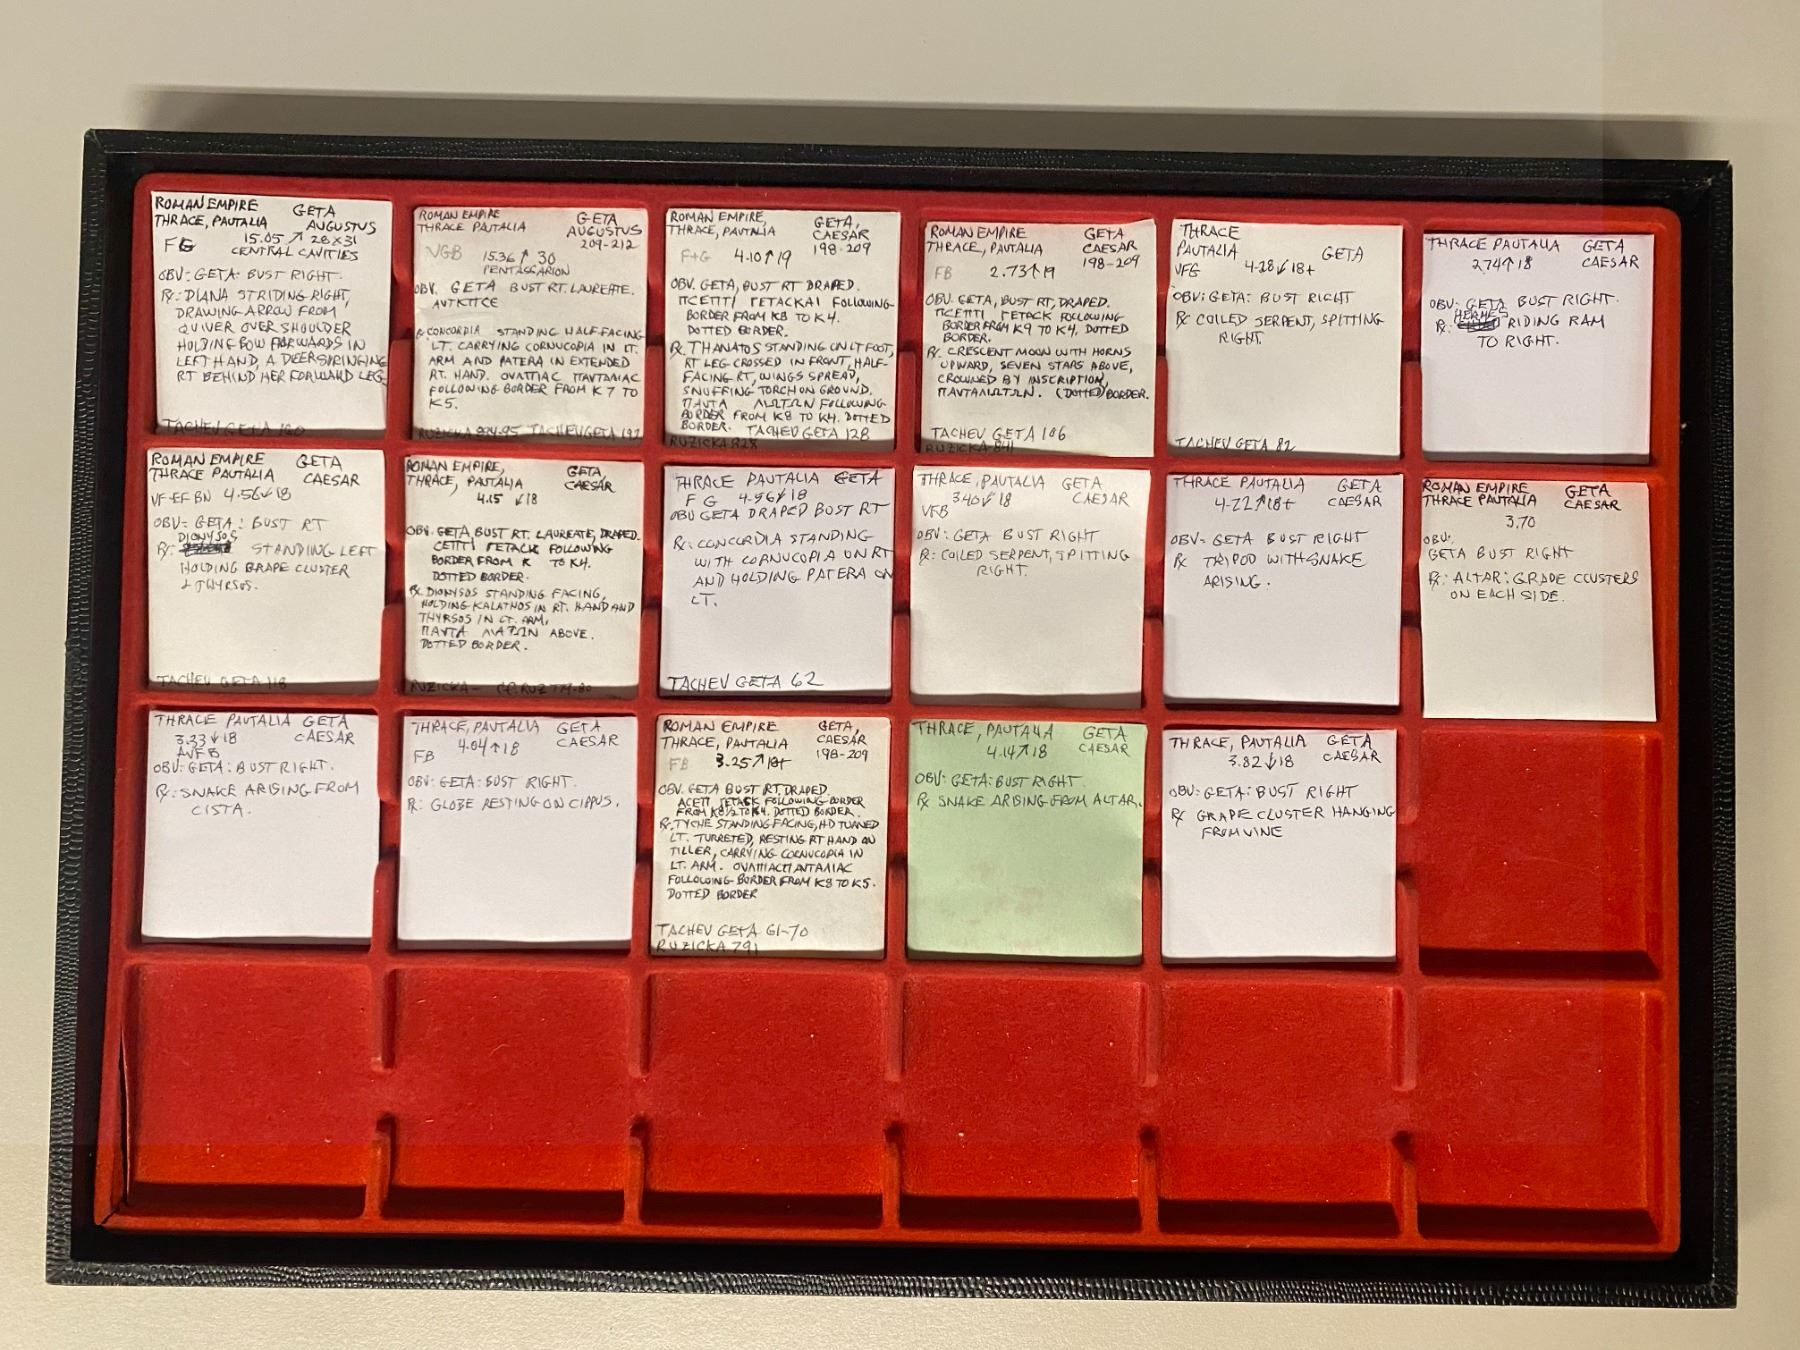 ROMAN EMPIRE GETA
THRACE, PAUTALIA AUGUSTUS
FG 15.05 ↗ 28×31
CENTRAL CAVITIES
OBV: GETA: BUST RIGHT.
R: DIANA STRIDING RIGHT,
DRAWING ARROW FROM
QUIVER OVER SHOULDER
HOLDING BOW FORWARDS IN
LEFT HAND, A DEER SPRINGING
RT BEHIND HER FORWARD LEG.
TACHEV GETA
ROMAN EMPIRE GETA
THRACE PAUTALIA AUGUSTUS
209-212
VGB 15.36 ↑ 30
PENTASSARION
OBV. GETA BUST RT. LAUREATE.
AVTKΠCE
R: CONCORDIA STANDING HALF-FACING
LT. CARRYING CORNUCOPIA IN LT.
ARM AND PATERA IN EXTENDED
RT. HAND. OVΛΠIAC ΠAVTAΛIAC
FOLLOWING BORDER FROM K7 TO
K5.
RUZICKA TACHEV GETA
ROMAN EMPIRE, GETA,
THRACE, PAUTALIA CAESAR
198-209
F+G 4.10 ↑ 19
OBV. GETA, BUST RT DRAPED.
ΠCEΠTI ΓETACKAI FOLLOWING
BORDER FROM K8 TO K4.
DOTTED BORDER.
R: THANATOS STANDING ON LT FOOT,
RT LEG CROSSED IN FRONT, HALF-
FACING RT, WINGS SPREAD,
SNUFFING TORCH ON GROUND.
ΠAVTA ΛIΩTΩN FOLLOWING
BORDER FROM K8 TO K4. DOTTED
BORDER. TACHEV GETA 128
RUZICKA 828
ROMAN EMPIRE GETA
THRACE, PAUTALIA CAESAR
198-209
FB 2.73 ↑ 19
OBV. GETA, BUST RT, DRAPED.
ΠCEΠTI ΓETACK FOLLOWING
BORDER FROM K9 TO K4. DOTTED
BORDER.
R: CRESCENT MOON WITH HORNS
UPWARD, SEVEN STARS ABOVE,
CROWNED BY INSCRIPTION,
ΠAVTAΛIΩTΩN. (DOTTED) BORDER.
TACHEV GETA 106
RUZICKA 841
THRACE
PAUTALIA GETA
VFG 4.28 ↙ 18+
OBV: GETA: BUST RIGHT
R: COILED SERPENT, SPITTING
RIGHT.
TACHEV GETA 82
THRACE PAUTALIA GETA
2.74 ↑ 18 CAESAR
OBV: GETA BUST RIGHT.
HERMES
R: RIDING RAM
TO RIGHT.
ROMAN EMPIRE GETA
THRACE PAUTALIA CAESAR
VF-EF BN 4.56 ↙ 18
OBV: GETA: BUST RT
DIONYSOS
R: STANDING LEFT
HOLDING GRAPE CLUSTER
& THYRSOS.
TACHEV GETA 118
ROMAN EMPIRE, GETA,
THRACE, PAUTALIA CAESAR
4.15 ↙ 18
OBV. GETA, BUST RT. LAUREATE, DRAPED.
CEΠTI ΓETACK FOLLOWING
BORDER FROM K TO K4.
DOTTED BORDER.
R: DIONYSOS STANDING FACING,
HOLDING KALATHOS IN RT. HAND AND
THYRSOS IN LT. ARM,
ΠAVTA ABOVE.
DOTTED BORDER.
RUZICKA-
THRACE PAUTALIA GETA
F G 4.96 ↙ 18
OBV GETA DRAPED BUST RT
R: CONCORDIA STANDING
WITH CORNUCOPIA ON RT
AND HOLDING PATERA ON
LT.
TACHEV GETA 62
THRACE, PAUTALIA GETA
3.40 ↙ 18 CAESAR
VFB
OBV: GETA BUST RIGHT
R: COILED SERPENT, SPITTING
RIGHT.
THRACE PAUTALIA GETA
4.22 ↗ 18+ CAESAR
OBV- GETA BUST RIGHT
R: TRIPOD WITH SNAKE
ARISING.
ROMAN EMPIRE GETA
THRACE PAUTALIA CAESAR
3.70
OBV.
GETA BUST RIGHT
R: ALTAR: GRADE CLUSTERS
ON EACH SIDE.
THRACE PAUTALIA GETA
3.33 ↓ 18 CAESAR
AVFB
OBV: GETA: BUST RIGHT.
R: SNAKE ARISING FROM
CISTA.
THRACE, PAUTALIA GETA
4.04 ↑ 18 CAESAR
FB
OBV: GETA: BUST RIGHT.
R: GLOBE RESTING ON CIPPUS.
ROMAN EMPIRE GETA,
THRACE, PAUTALIA CAESAR
198-209
FB 3.25 ↗ 18+
OBV. GETA BUST RT, DRAPED.
ΛCEΠ ΓETACK FOLLOWING BORDER
FROM K8½ TO K4. DOTTED BORDER.
R: TYCHE STANDING FACING, HD TURNED
LT. TURRETED, RESTING RT HAND ON
TILLER, CARRYING CORNUCOPIA IN
LT. ARM. OVΛΠIACΠAVTAΛIAC
FOLLOWING BORDER FROM K8 TO K5.
DOTTED BORDER
TACHEV GETA 61-70
RUZICKA 791
THRACE, PAUTALIA GETA
4.14 ↗ 18 CAESAR
OBV: GETA: BUST RIGHT.
R: SNAKE ARISING FROM ALTAR.
THRACE, PAUTALIA GETA
3.82 ↓ 18 CAESAR
OBV: GETA: BUST RIGHT
R: GRAPE CLUSTER HANGING
FROM VINE